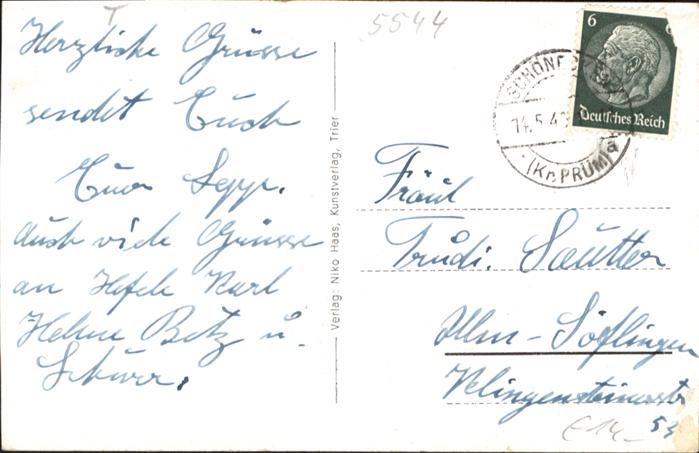 5544
Herzliche Grüsse
sendet Euch
Euer Sepp.
Auch viele Grüsse
an Hefele Karl
Helme Betz u.
Verlag: Niko Haas, Kunstverlag, Trier
6
Deutsches Reich
SCHÖNECKEN
14.5.4
(Kr. PRÜM)
a
Fräul
Trudi. Sautter
Ulm - Söflingen
Klingensteinerstr
54
€14